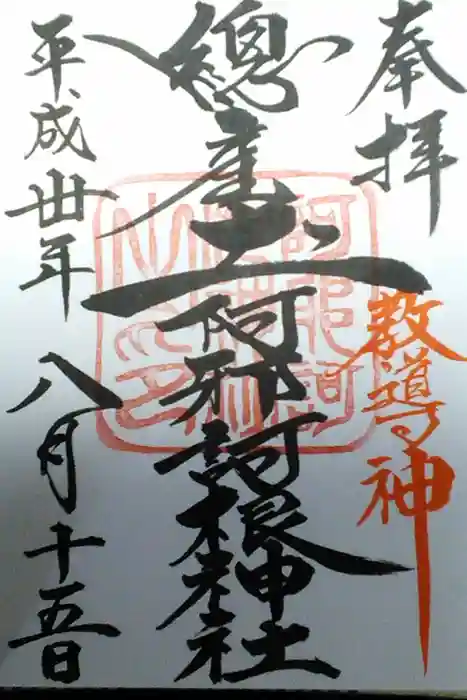 奉拝
教導神
總産土阿邪訶根神社
平成丗年
八月十五日